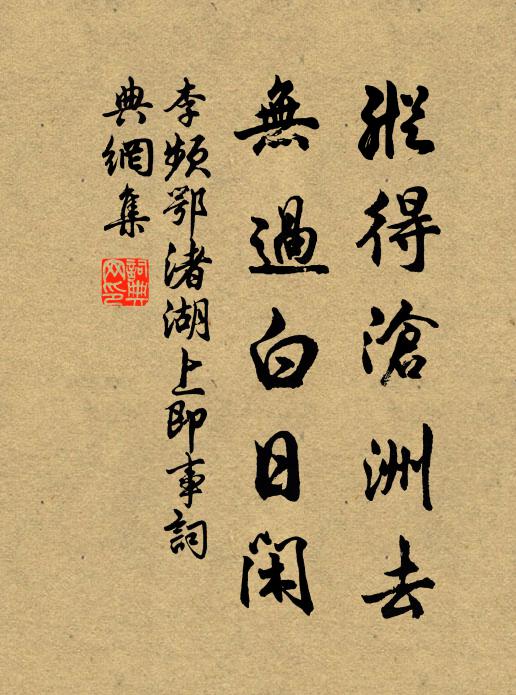 縱得滄洲去
無過白日閑
李頻鄂渚湖上即事詞
典網集
詞典
网印